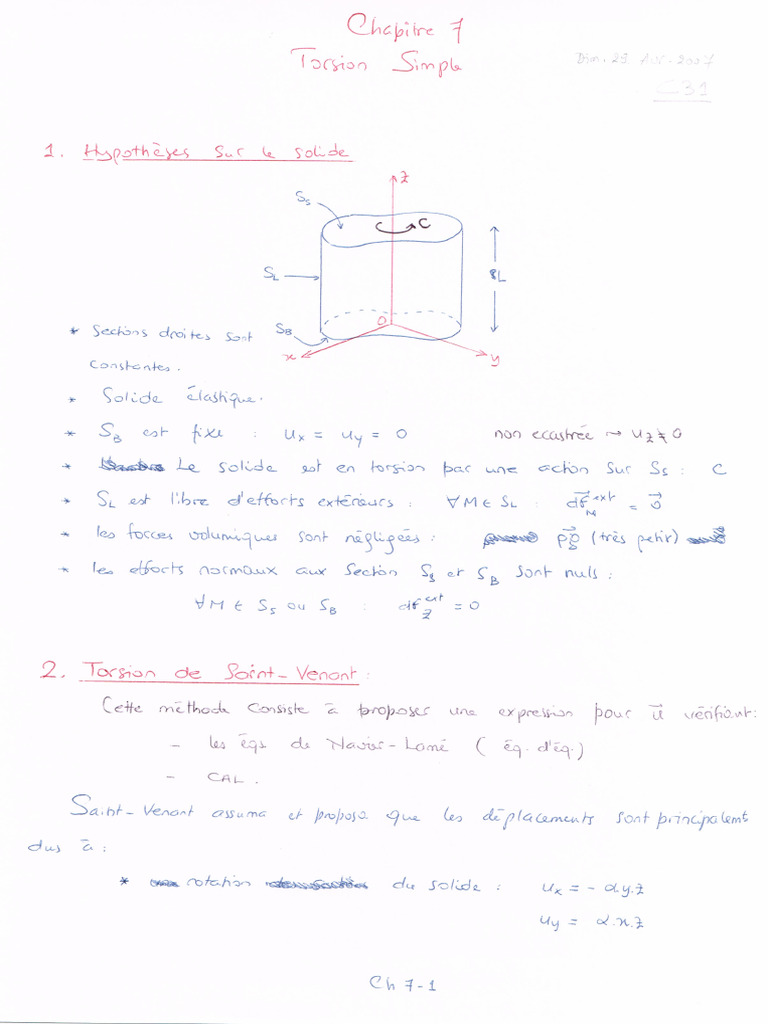 Chapitre 7
Torsion Simple
Dim. 29 Avr. 2007
C31
1. Hypothèses sur le solide
z
Ss
C
SL
L
O
SB
x
y
* Sections droites sont
constantes.
* Solide élastique.
* SB est fixe : ux = uy = 0 non ecastrée → uz ≠ 0
* Le solide est en torsion par une action sur Ss : C
* SL est libre d'efforts extérieurs : ∀M ∈ SL : df⃗_M^ext = 0⃗
* les forces volumiques sont négligées : ρg⃗ (très petit)
* les efforts normaux aux section Ss et SB sont nuls :
∀M ∈ Ss ou SB : df_z^ext = 0
2. Torsion de Saint-Venant :
Cette méthode consiste à proposer une expression pour u⃗ vérifiant :
- les éqs de Navier-Lamé ( éq. d'éq.)
- CAL.
Saint-Venant assuma et proposa que les déplacements sont principalemt
dus à :
* rotation du solide : ux = - α.y.z
uy = α.x.z
Ch 7-1